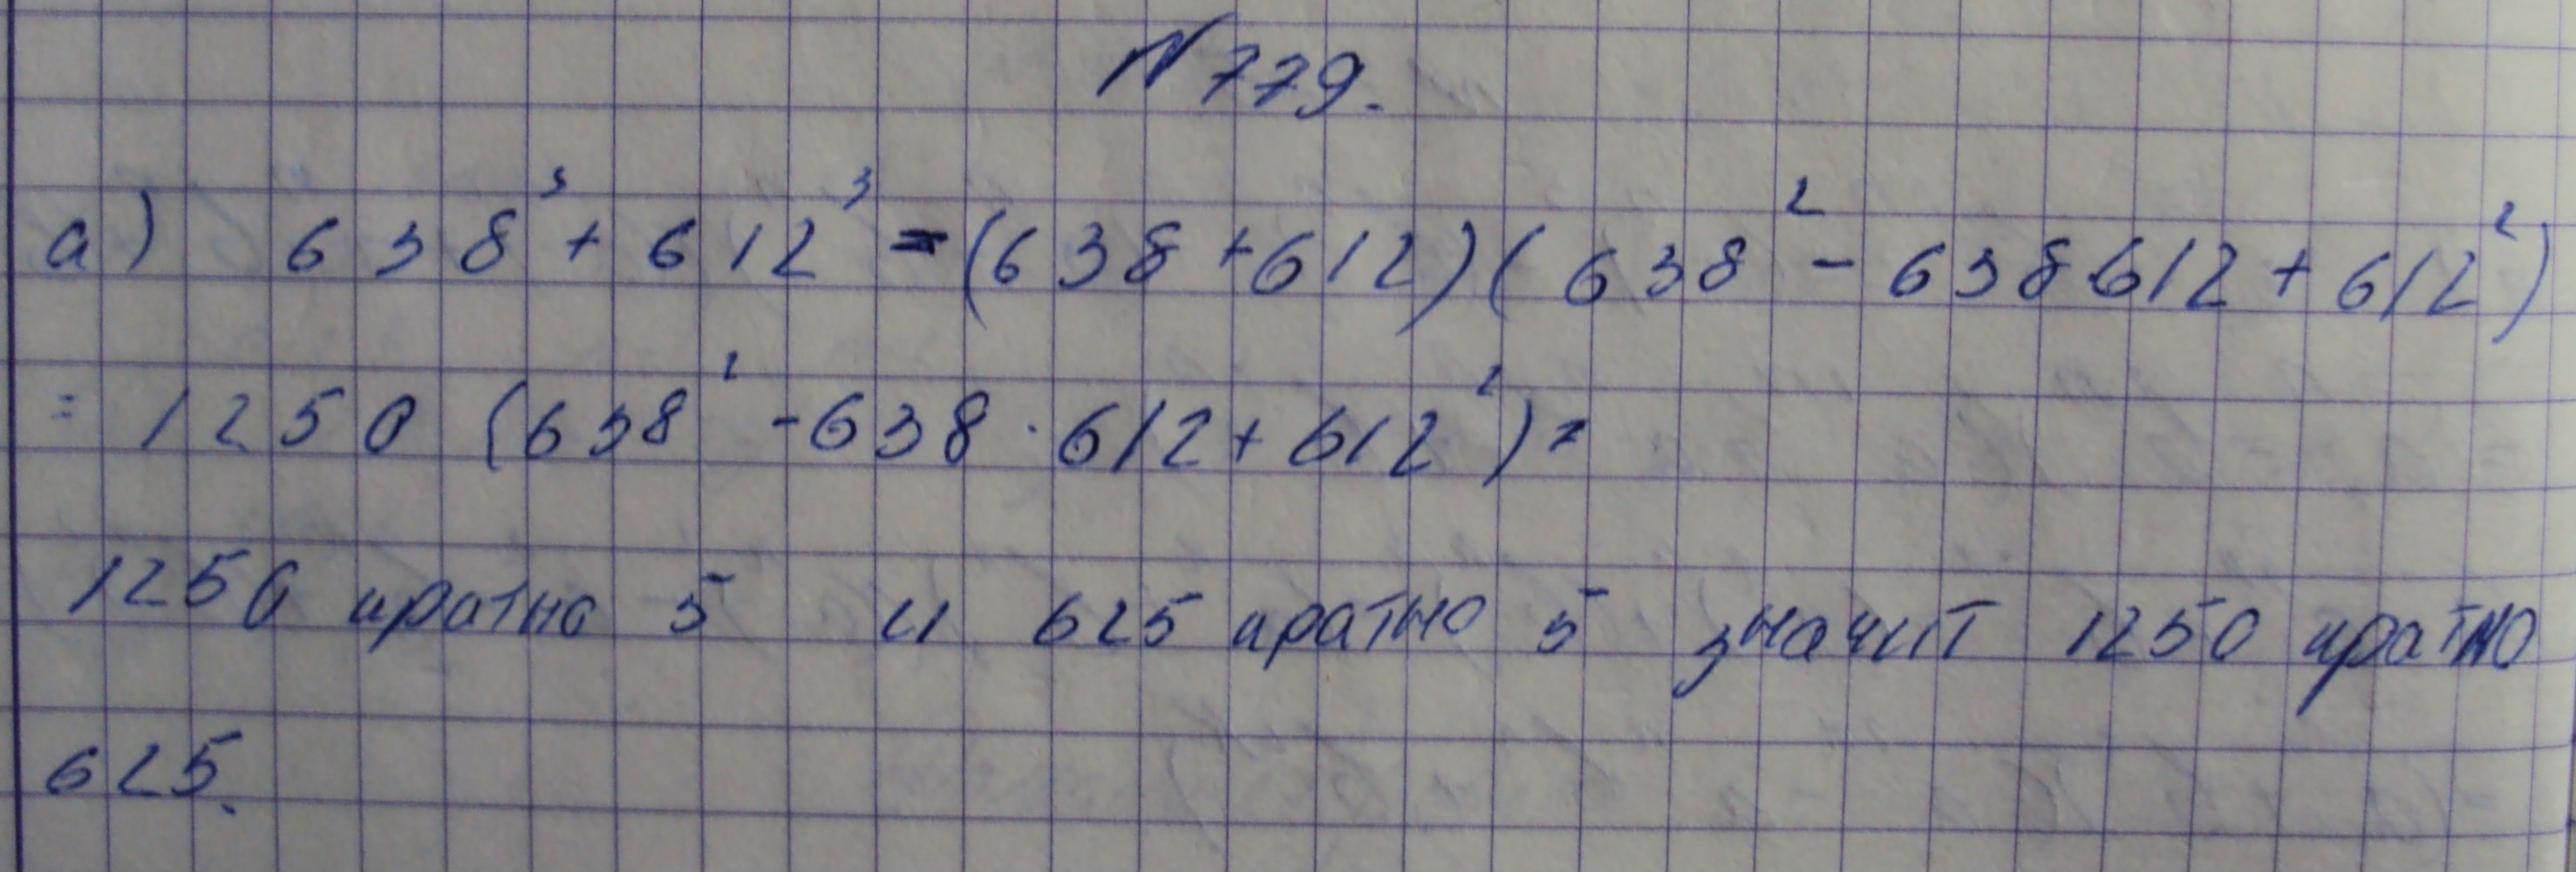 №779.
а) 638³ + 612³ = (638 + 612)(638² - 638·612 + 612²)
= 1250 (638² - 638 · 612 + 612²) =
1250 кратно 5 и 625 кратно 5 значит 1250 кратно
625.